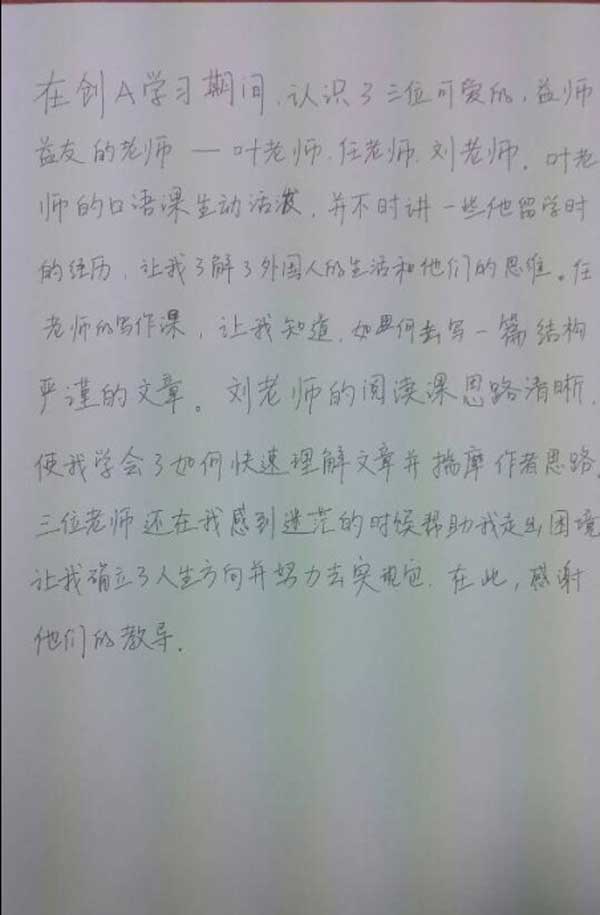 在创A学习期间,认识了三位可爱的,益师
益友的老师 — 叶老师.任老师.刘老师. 叶老
师的口语课生动活泼,并不时讲一些他留学时
的经历,让我了解了外国人的生活和他们的思维。任
老师的写作课,让我知道,如何去写一篇结构
严谨的文章。刘老师的阅读课思路清晰,
使我学会了如何快速理解文章并揣摩作者思路.
三位老师还在我感到迷茫的时候帮助我走出困境
让我确立了人生方向并努力去实现它.在此,感谢
他们的教导.